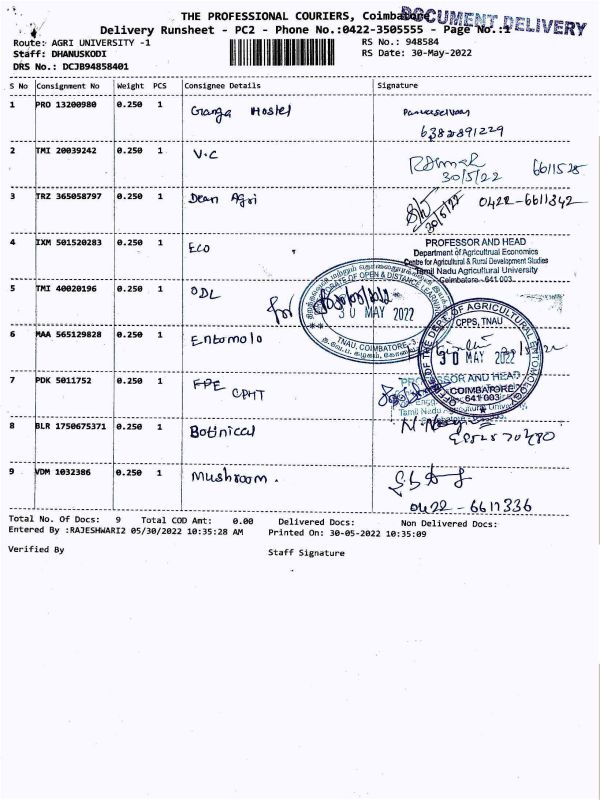 THE PROFESSIONAL COURIERS, Coimbatore
DOCUMENT DELIVERY
Delivery Runsheet - PC2 - Phone No.:0422-3505555 - Page No.:1
Route: AGRI UNIVERSITY -1 RS No.: 948584
Staff: DHANUSKODI RS Date: 30-May-2022
DRS No.: DCJB94858401
S No Consignment No Weight PCS Consignee Details Signature
1 PRO 13200980 0.250 1 Ganga Hostel
6382891229
2 TMI 20039242 0.250 1 V.C
30/5/22 6611528
3 TRZ 365058797 0.250 1 Dean Agri 30/5/22 0422-6611342
4 IXM 501520283 0.250 1 Eco
PROFESSOR AND HEAD
Department of Agricultrual Economics
Centre for Agricultural & Rural Development Studies
Tamil Nadu Agricultural University
Coimbatore - 641 003.
5 TMI 40020196 0.250 1 ODL
DIRECTORATE OF OPEN & DISTANCE LEARNING
30 MAY 2022
TNAU, COIMBATORE-3.
6 MAA 565129828 0.250 1 Entomolo
OFFICE OF THE DEPT. OF AGRICULTURAL ENTOMOLOGY
CPPS, TNAU
30 MAY 2022
COIMBATORE
641 003
7 PDK 5011752 0.250 1 FPE CPHT
PROFESSOR AND HEAD
Tamil Nadu Agricultural University
8 BLR 1750675371 0.250 1 Botinical
9 VDM 1032386 0.250 1 Mushroom.
0422 - 6611336
Total No. Of Docs: 9 Total COD Amt: 0.00 Delivered Docs: Non Delivered Docs:
Entered By :RAJESHWARI2 05/30/2022 10:35:28 AM Printed On: 30-05-2022 10:35:09
Verified By Staff Signature